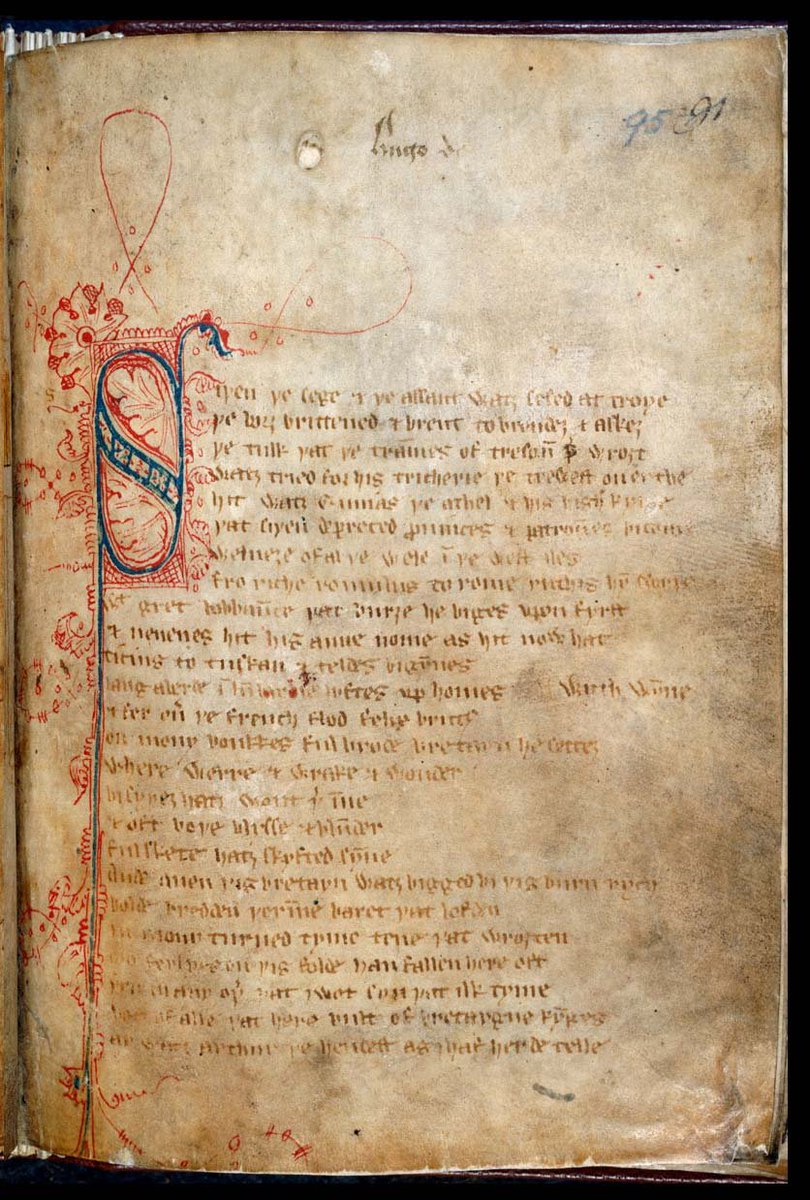 Hugo de
95 91
Siþen þe sege & þe assaut watz sesed at troye
þe borȝ brittened & brent to brondeȝ & askez
þe tulk þat þe tram̄es of tresoū þ̉ wroȝt
watz tried for his tricherie þe trewest on erthe
hit watz Ennias þe athel & his highe kynde
þat siþen depreced prouinces & patroūes bicome
welneȝe of al þe wele ī þe west iles
fro riche romulus to rome ricchis hȳ swyþe
gret bobbaūce þat burȝe he biges vpon fyrst
& neuenes hit his aune nome as hit now hat
ticius to tuskan & teldes bigȳnes
langaberde ī lumbardie lyftes vp homes wyth wȳne
& fer oủ þe french flod felix brutus
on mony bonkkes ful brode bretayn he settez
where werre & wrake & wonder
bi syþez hatz wont þ̉ īne
& oft boþe blysse & blūder
ful skete hatz skyfted sȳne
Ande quen þis bretayn watz bigged bi þis burn rych
bolde bredden þer īne baret þat lofden
in mony turned tyme tene þat wroȝten
mo ferlyes on þis folde han fallen here oft
þen in any oþ̉ þat I wot syn þat ilk tyme
bot of alle þat here bult of bretaygne kȳges
ay watz arthur þe hendest as I haf herde telle